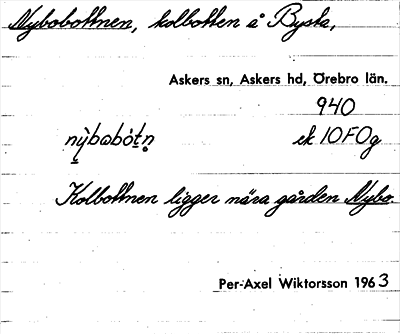 Nybobottnen, kolbotten å Bysta,
Askers sn, Askers hd, Örebro län.
940
nỳbωbòtn̥ ek 10F0g
Kolbottnen ligger nära gården Nybo.
Per-Axel Wiktorsson 1963